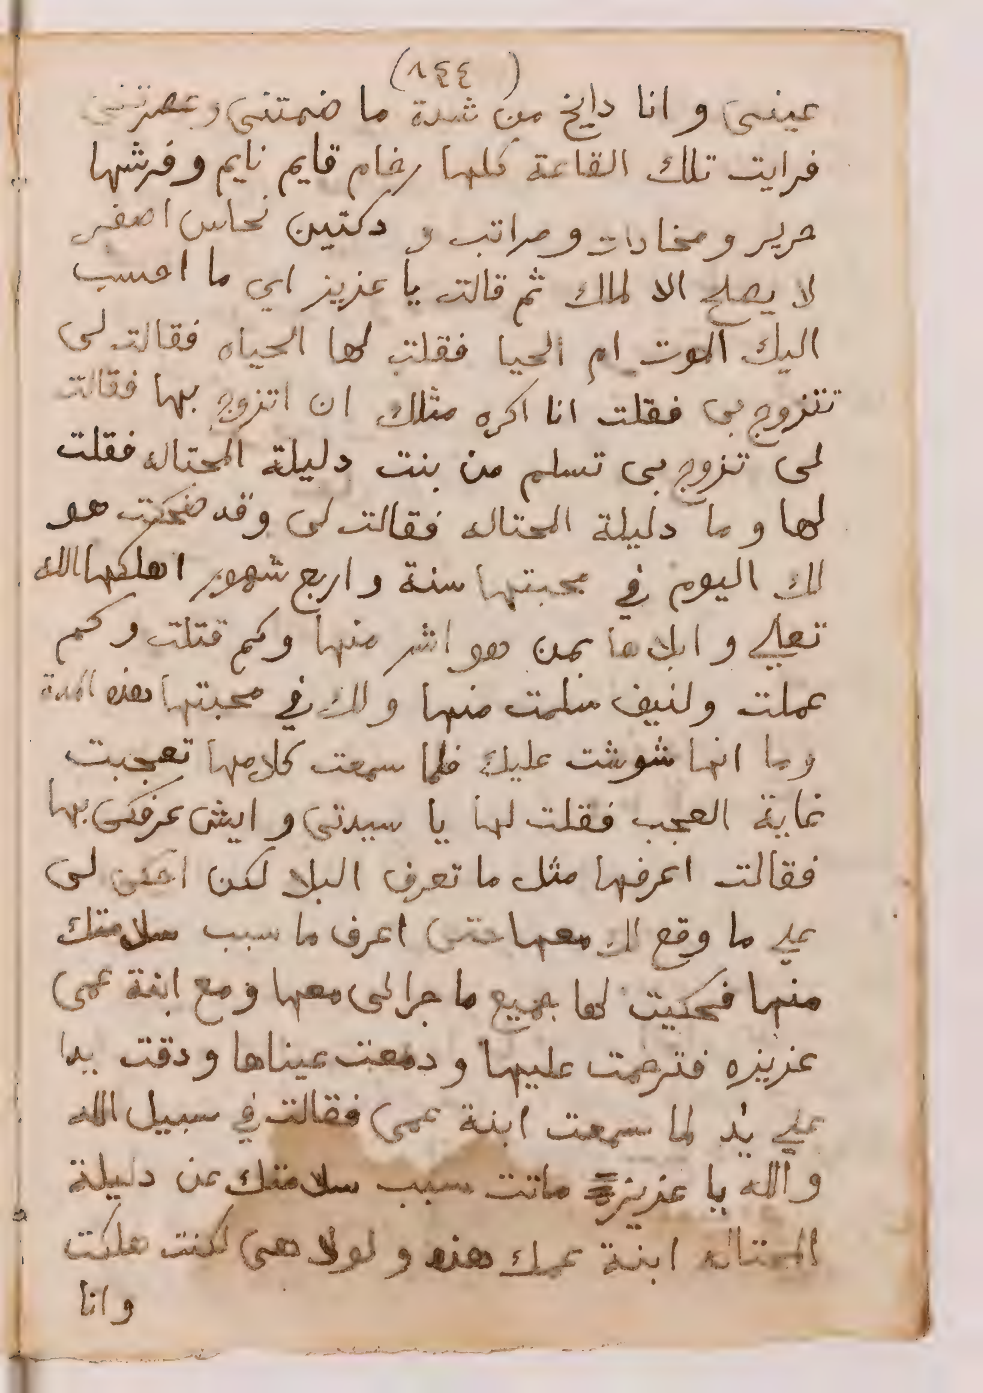 (٨٤٤)
عينى و انا دايخ من شدة ما ضمتنى وعصرتنى
فرايت تلك القاعة كلها رخام قايم نايم وفرشها
حرير و مخادات و مراتب و دكتين نحاس اصفر
لا يصلح الا لملك ثم قالت يا عزيز اي ما احسب
اليك الموت ام الحيا فقلت لها الحياه فقالت لى
تتزوج بى فقلت انا اكره مثلك ان اتزوج بها فقالت
لى تزوج بى تسلم من بنت دليلة المحتاله فقلت
لها و ما دليلة المحتاله فقالت لى وقد ضحكت هو
لك اليوم في محبتها سنة و اربع شهور اهلكها الله
تعلى و ابلاها بمن هو اشر منها وكم قتلت وكم
عملت وكيف سلمت منها ولك في محبتها هذه المدة
وما انها شوشت عليك فلما سمعت كلامها تعجبت
غاية العجب فقلت لها يا سيدتى و ايش عرفكى بها
فقالت اعرفها مثل ما تعرف البلا لكن احكى لى
على ما وقع لك معها حتى اعرف ما سبب سلامتك
منها فحكيت لها بجميع ما جرا لى معها ومع ابنة عمى
عزيزه فترحمت عليها و دمعت عيناها ودقت يدا
على يد لما سمعت ابنة عمى فقالت في سبيل الله
والله يا عزيز ماتت سبب سلامتك من دليلة
المحتاله ابنة عمك هذه و لولا هى لكنت هلكت
وانا